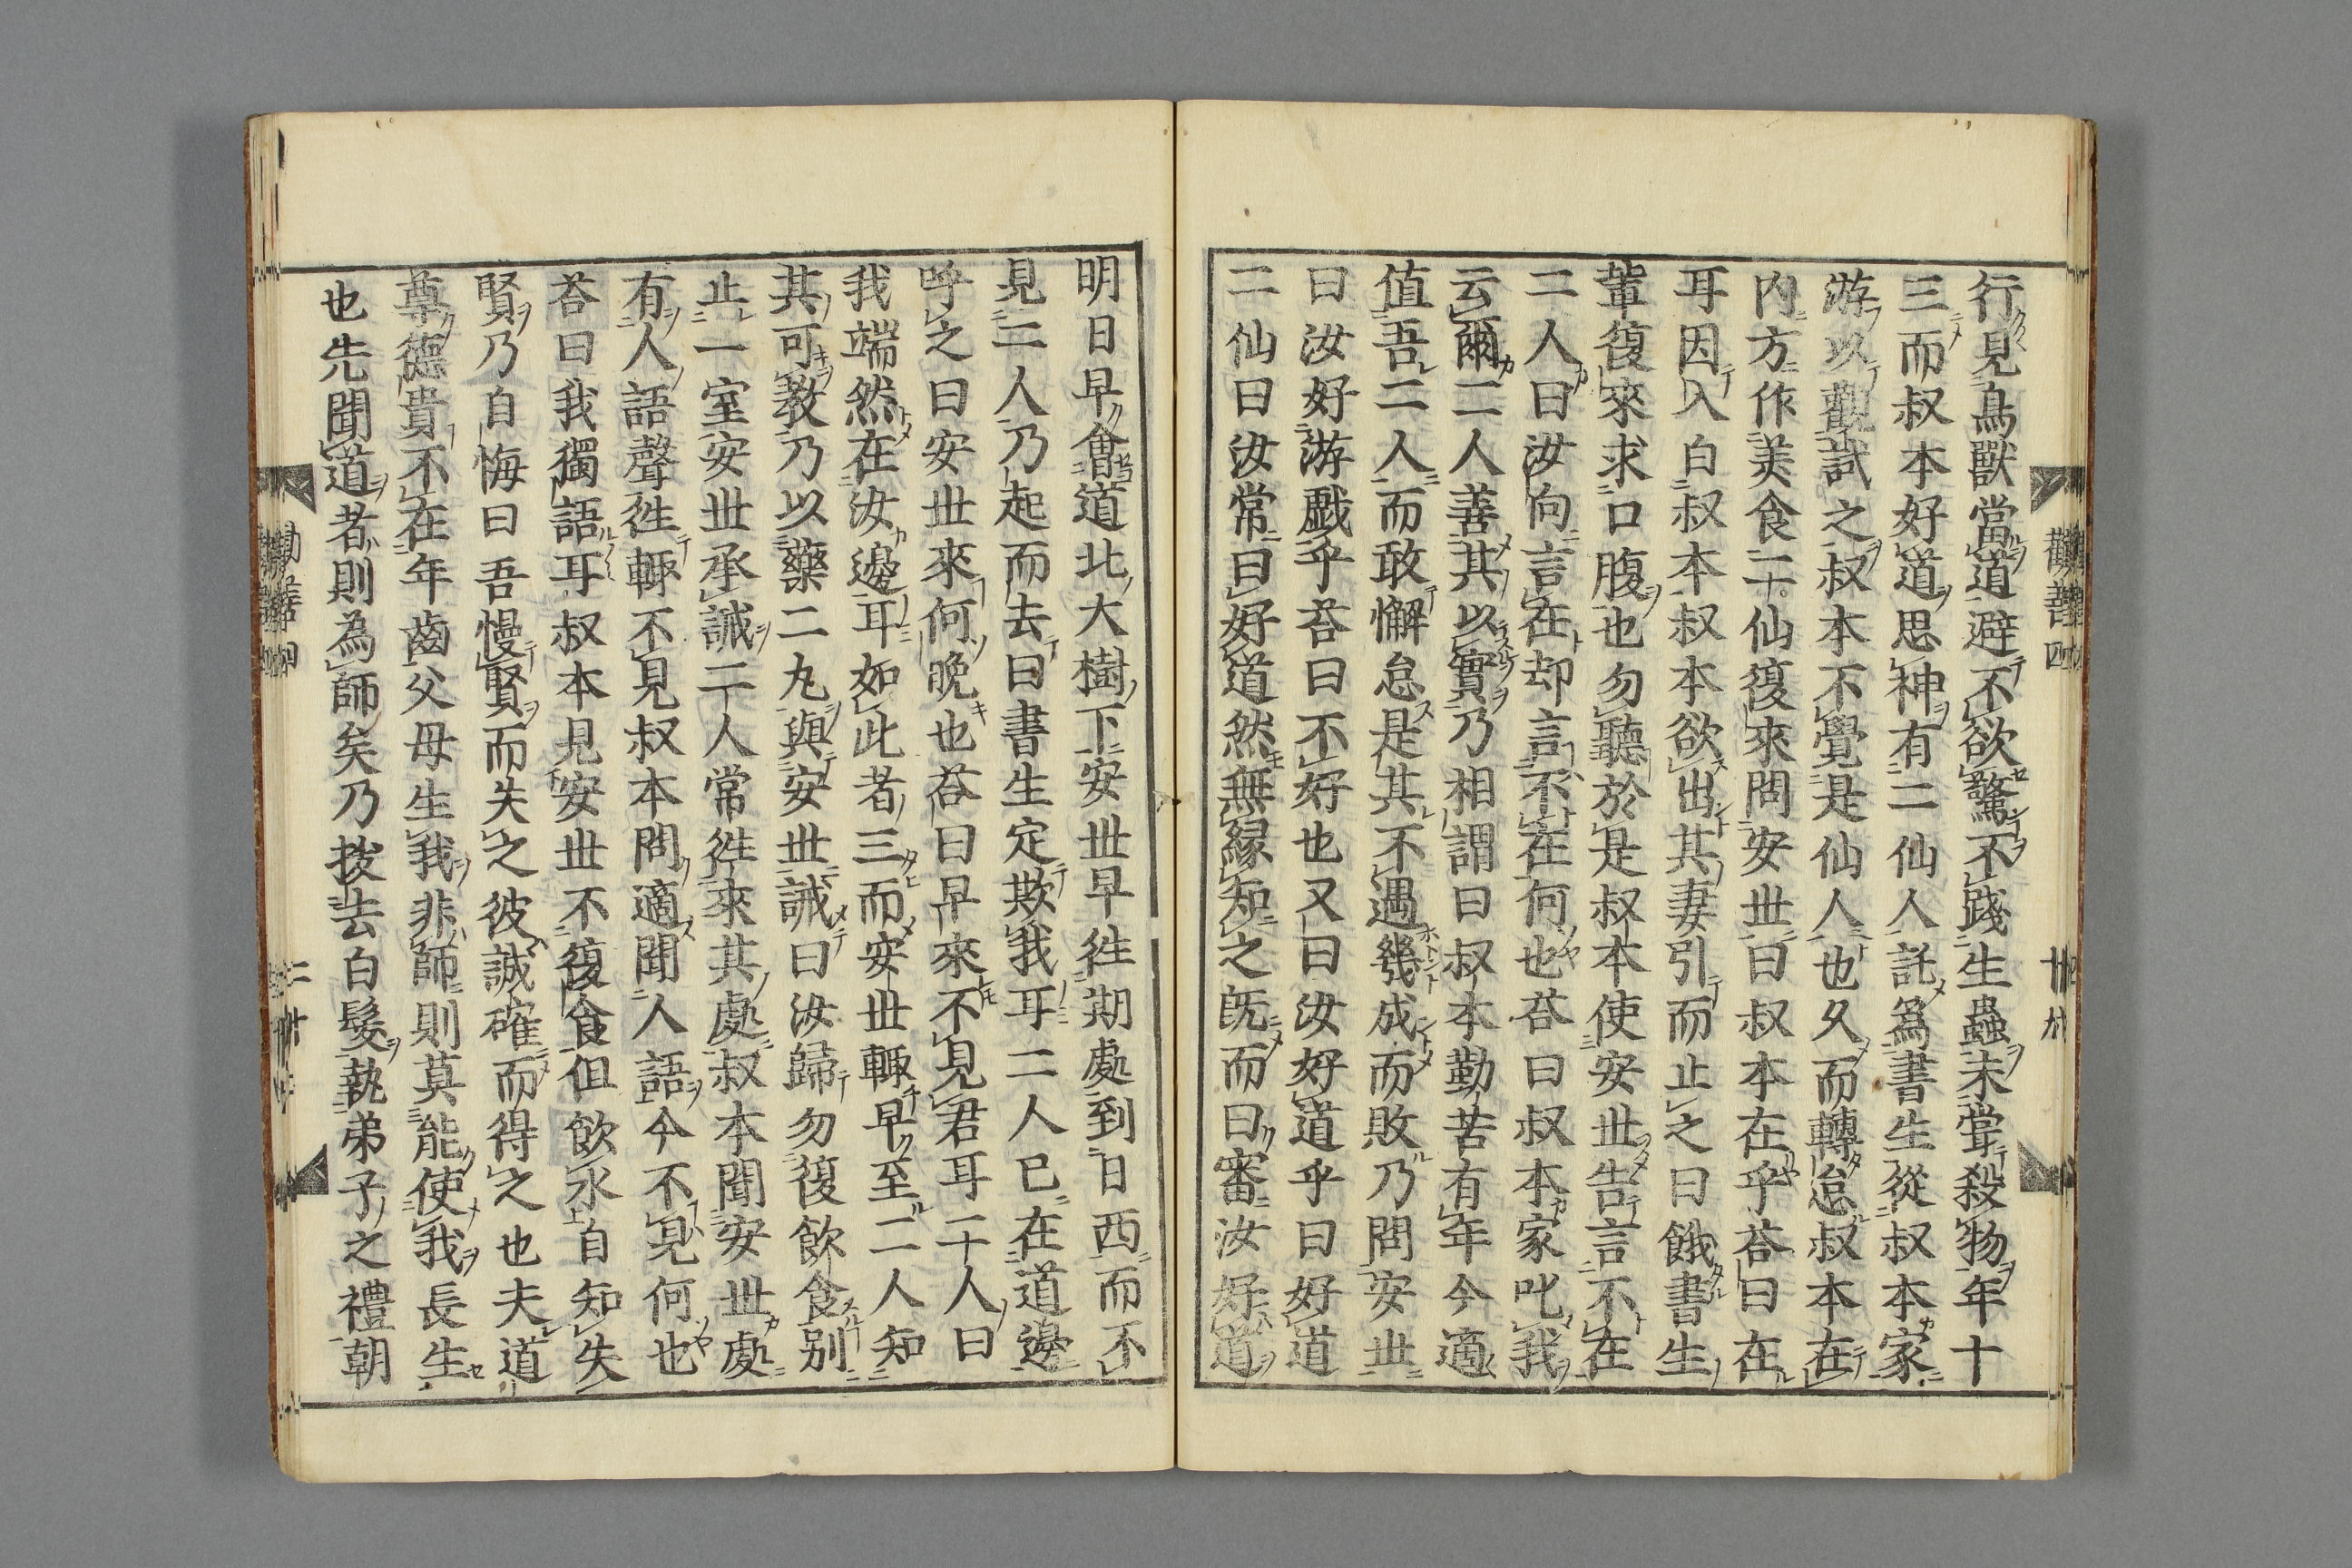 行見鳥獸當道避不欲驚不踐生蟲未甞殺物年十
三而叔本好道思神有二仙人託爲書生從叔本家
游以觀試之叔本不覺是仙人也久而轉怠叔本在
内方作美食二仙復來問安丗曰叔本在乎荅曰在
耳因入白叔本叔本欲出其妻引而止之曰餓書生
輩復來求口腹也勿聽於是叔本使安丗告言不在
二人曰汝向言在却言不在何也荅曰叔本家叱我
云爾二人善其以實乃相謂曰叔本勤苦有年今適
值吾二人而敢懈怠是其不遇幾成而敗乃問安丗
曰汝好游戲乎荅曰不好也又曰汝好道乎曰好道
二仙曰汝常曰好道然無緣知之旣而曰審汝好道
明日早會道北大樹下安丗早徃期處到日西而不
見二人乃起而去曰書生定欺我耳二人已在道邊
呼之曰安丗來何晩也荅曰早來不見君耳二人曰
我端然在汝邊耳如此者三而安丗輒早至二人知
其可教乃以藥二丸與安丗誡曰汝歸勿復飲食别
止一室安丗承誡二人常徃來其處叔本聞安丗處
有人語聲徃輒不見叔本問適聞人語今不見何也
荅曰我獨語耳叔本見安丗不復食但飲水自知失
賢乃自悔曰吾慢賢而失之彼誠確而得之也夫道
尊德貴不在年齒父母生我非師則莫能使我長生
也先聞道者則為師矣乃拨去白髮執弟子之禮朝
勸善四
廿九